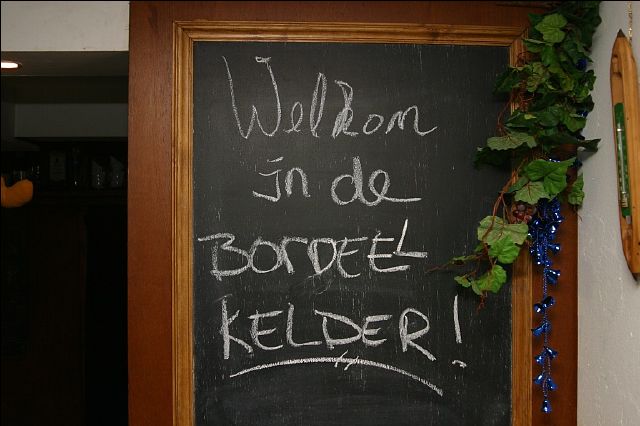 Welkom
in de
BORDEEL
KELDER!